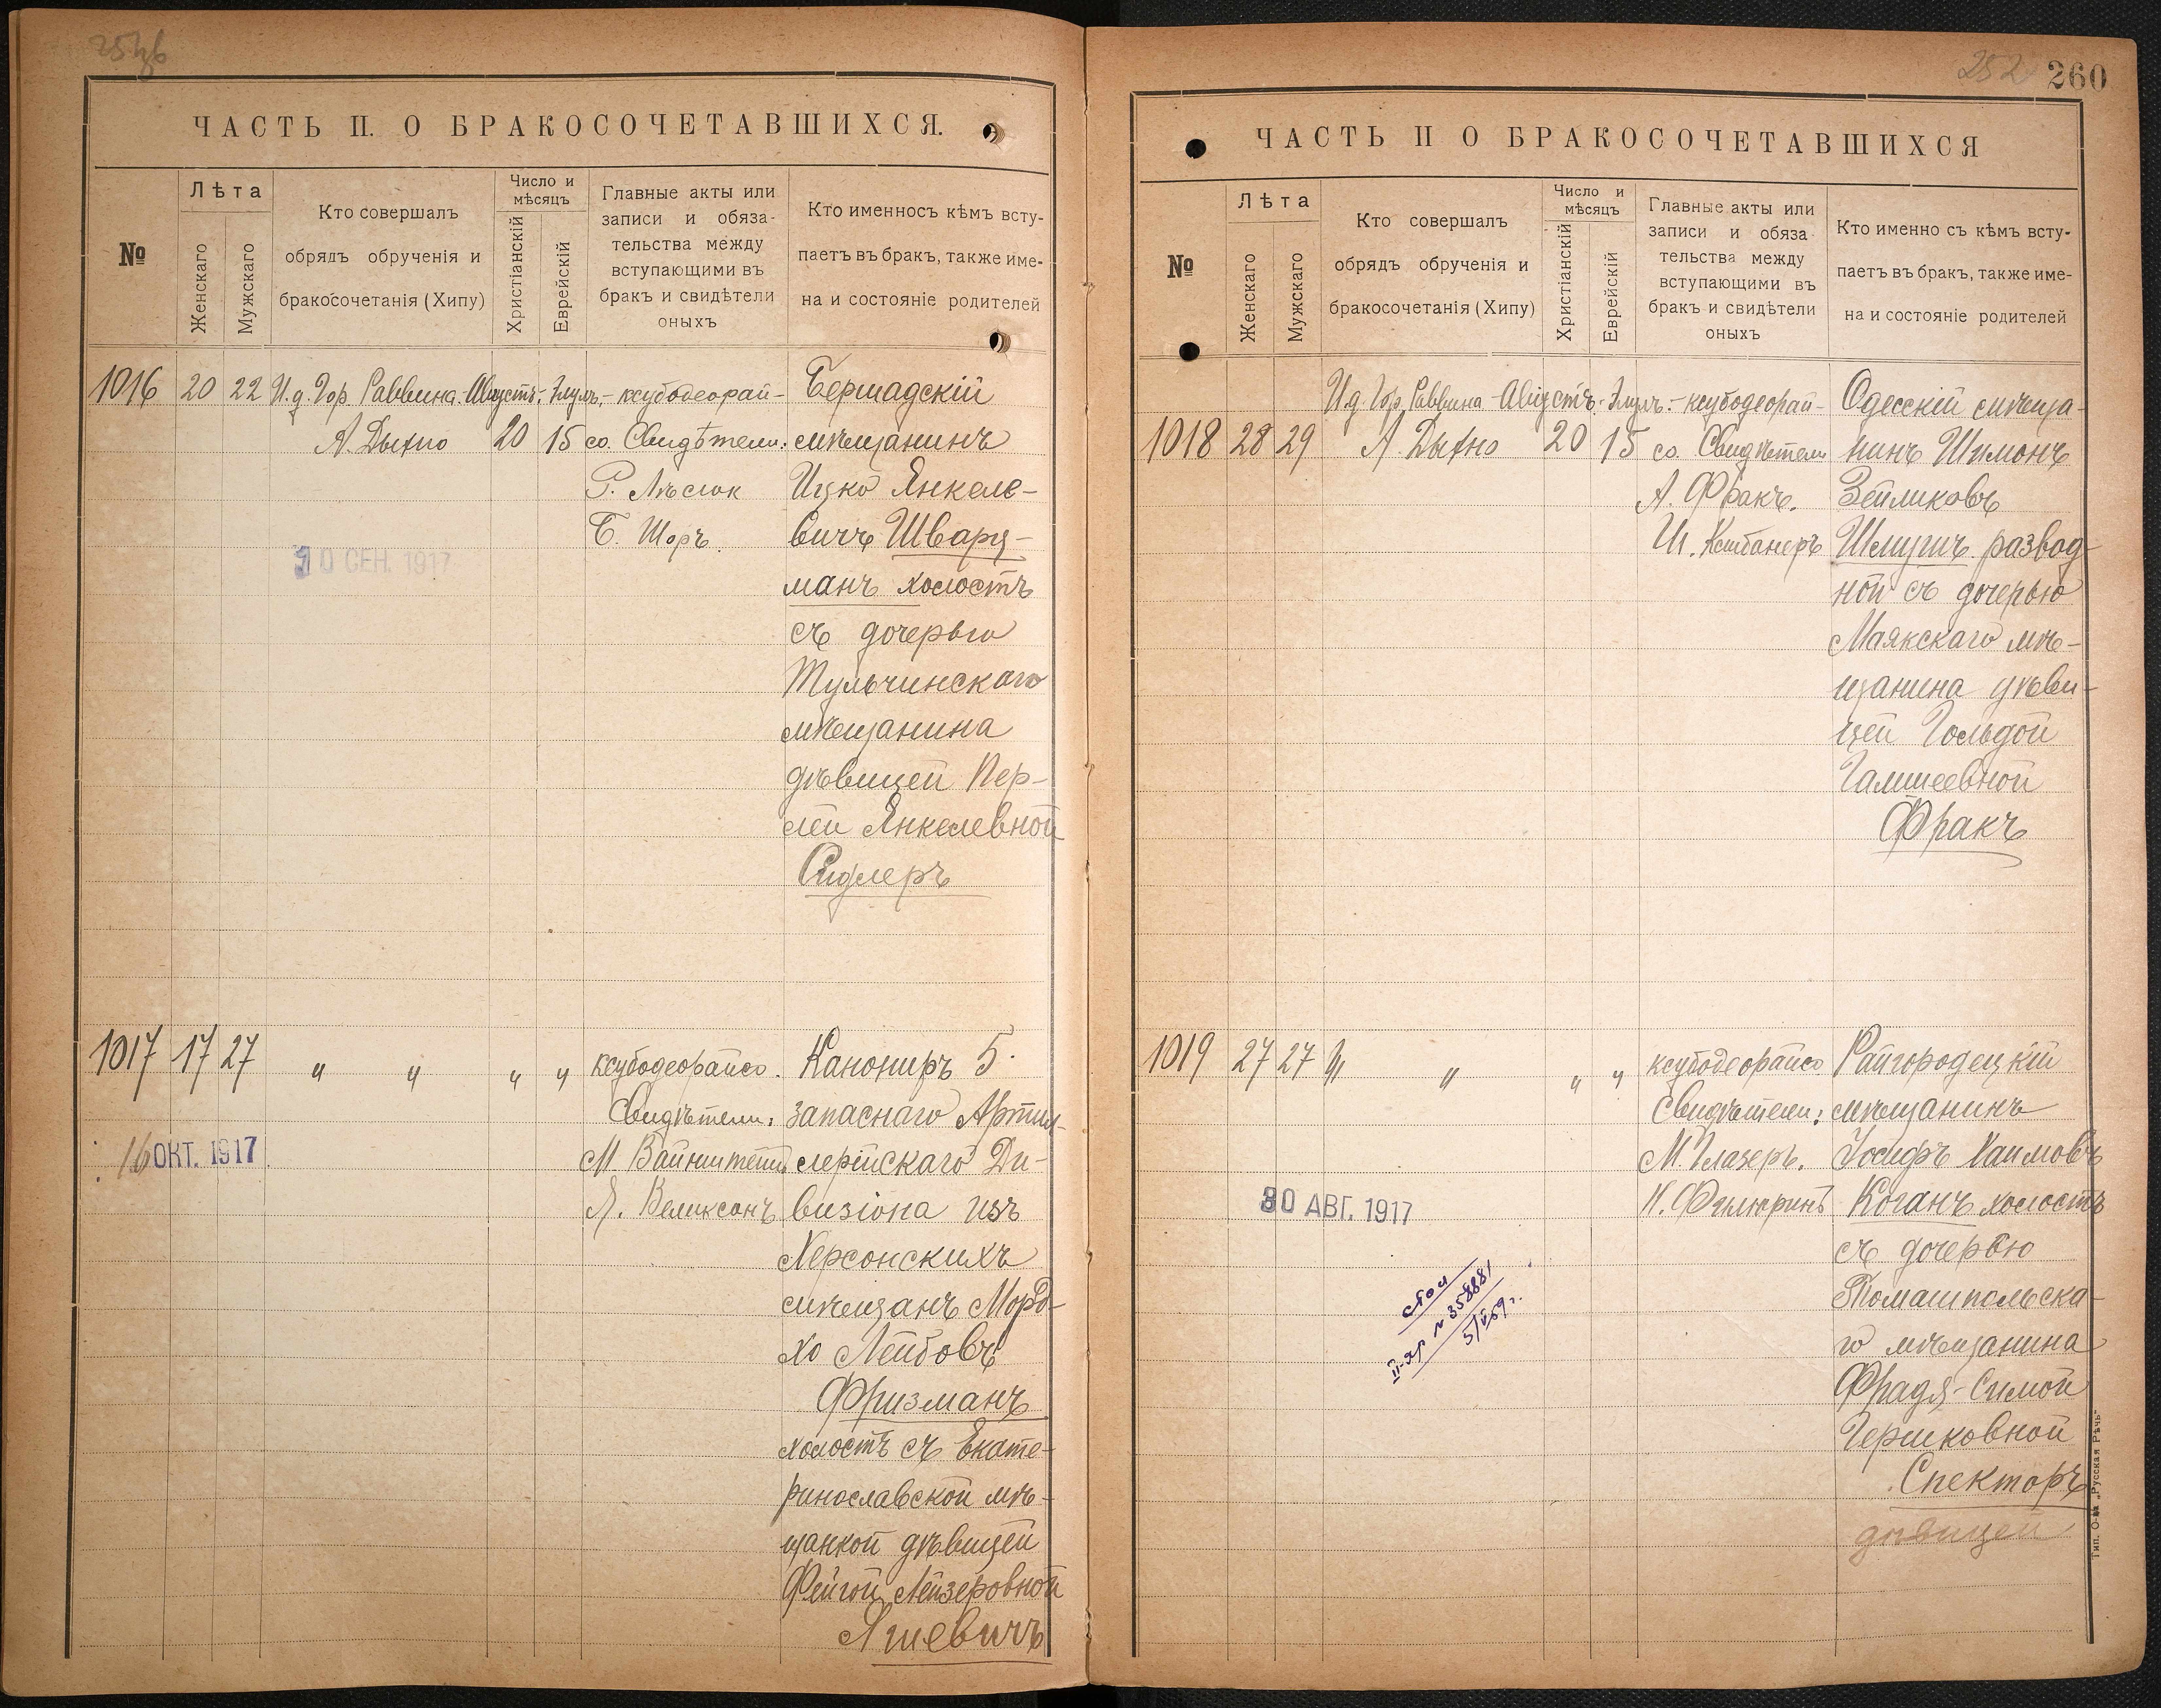 260
252
ЧАСТЬ II. О БРАКОСОЧЕТАВШИХСЯ.
№
Лѣта
Женскаго
Мужскаго
Кто совершалъ
обрядъ обрученія и
бракосочетанія (Хипу)
Число и
мѣсяцъ
Христіанскій
Еврейскій
Главные акты или
записи и обяза-
тельства между
вступающими въ
бракъ и свидѣтели
оныхъ
Кто именносъ кѣмъ всту-
паетъ въ бракъ, также име-
на и состояніе родителей
1016 20 22 И.д. Гор. Раввина Августъ. Элулъ. ксубодеорай-
А. Дыхно 20 15 со. Свидѣтели:
Р. Лѣсюк
Б. Шоръ.
10 СЕН. 1917
Бершадскій
мѣщанинъ
Ицко Янкеле-
вичъ Шварц-
манъ холостъ
съ дочерью
Тульчинскаго
мѣщанина
дѣвицей Пер-
лей Янкелевной
Сидлеръ
1017 17 27 " " " " ксубодеорайсо.
Свидѣтели:
М. Вайнштейнъ
Я. Великсонъ
16 ОКТ. 1917
Канониръ 5.
запаснаго Артил-
лерійскаго Ди-
визіона изъ
Херсонскихъ
мѣщанъ Мордо-
хо Лейбовъ
Фризманъ
холостъ съ Екате-
ринославской мѣ-
щанкой дѣвицей
Фейгой Лейзеровной
Ягневичъ
ЧАСТЬ II О БРАКОСОЧЕТАВШИХСЯ
№
Лѣта
Женскаго
Мужскаго
Кто совершалъ
обрядъ обрученія и
бракосочетанія (Хипу)
Число и
мѣсяцъ
Христіанскій
Еврейскій
Главные акты или
записи и обяза
тельства между
вступающими въ
бракъ и свидѣтели
оныхъ
Кто именно съ кѣмъ всту-
паетъ въ бракъ, также име-
на и состояніе родителей
И.д. Гор. Раввина Августъ. Элулъ. ксубодеорай-
1018 28 29 А. Дыхно 20 15 со. Свидѣтели
А. Фракъ.
Одесскій мѣща-
нинъ Шимонъ
Зейликовъ
Шмугичъ развод-
ной съ дочерью
Маякскаго мѣ-
щанина дѣви-
цей Гольдой
Гамшеевной
Фракъ
1019 27 27 " " " " ксубодеорайсо
Свидѣтели:
М. Глазеръ.
Н. Филюринъ
30 АВГ. 1917
II-яр № 358881
5/V 59 г.
Райгородецкій
мѣщанинъ
Іосифъ Хаимовъ
Коганъ холостъ
съ дочерью
Томашпольска-
го мѣщанина
Фрадя-Симой
Гершковной
Спекторъ
дѣвицей
Тип. О-ва „Русская Рѣчь“